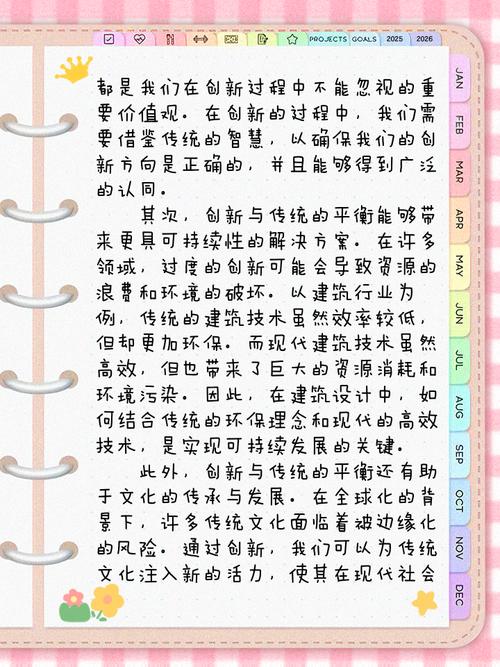 PROJECTS GOALS 2025 2026
都是我们在创新过程中不能忽视的重
要价值观。在创新的过程中，我们需
要借鉴传统的智慧，以确保我们的创
新方向是正确的，并且能够得到广泛
的认同。
其次，创新与传统的平衡能够带
来更具可持续性的解决方案。在许多
领域，过度的创新可能会导致资源的
浪费和环境的破坏。以建筑行业为
例，传统的建筑技术虽然效率较低，
但却更加环保。而现代建筑技术虽然
高效，但也带来了巨大的资源消耗和
环境污染。因此，在建筑设计中，如
何结合传统的环保理念和现代的高效
技术，是实现可持续发展的关键。
此外，创新与传统的平衡还有助
于文化的传承与发展。在全球化的背
景下，许多传统文化面临着被边缘化
的风险。通过创新，我们可以为传统
文化注入新的活力，使其在现代社会
JAN
FEB
MAR
APR
MAY
JUN
JUL
AUG
SEP
OCT
NOV
DEC